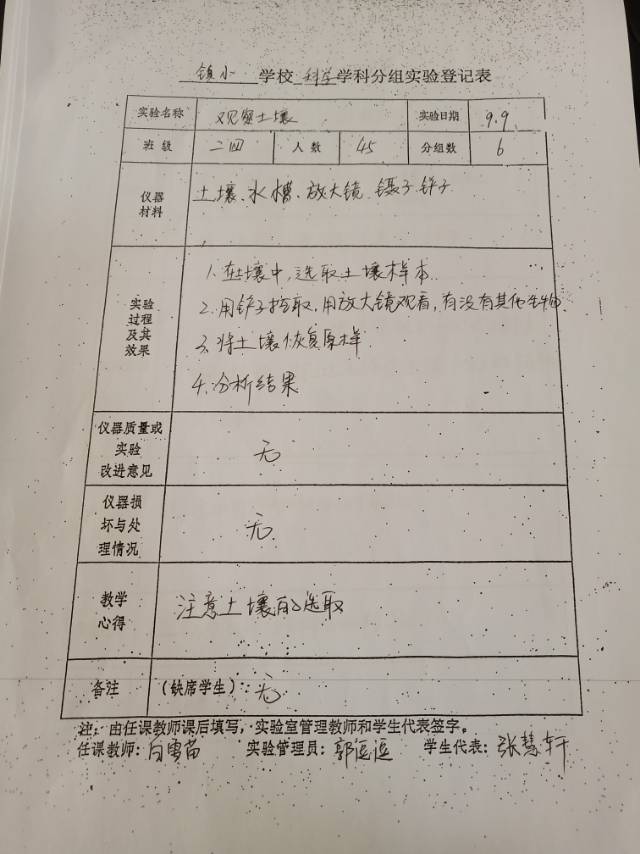 镇小 学校 科学 学科分组实验登记表
实验名称 观察土壤 实验日期 9.9
班级 二四 人数 45 分组数 6
仪器
材料
土壤、水槽、放大镜、镊子、铲子
实验
过程
及其
效果
1. 在土壤中,选取土壤样本.
2. 用铲子挖取,用放大镜观看,有没有其他生物.
3. 将土壤恢复原样.
4. 分析结果
仪器质量或
实验
改进意见
无
仪器损
坏与处
理情况
无.
教学
心得
注意土壤的选取
备注 (缺席学生):无
注:由任课教师课后填写,实验室管理教师和学生代表签字。
任课教师:白雪苗 实验管理员:郭 学生代表:张慧轩